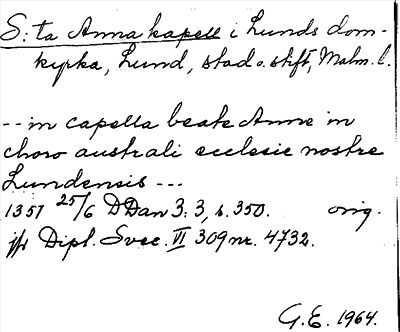 S:ta Anna kapell i Lunds dom-
kyrka, Lund, stad o. stift, Malm. l.
-- in capella beate Anne in
choro australi ecclesie nostre
Lundensis ---
1351 25/6 DDan 3:3, s. 350. orig.
jfr Dipl. Svec. VI 309 nr. 4732.
G.E. 1964.